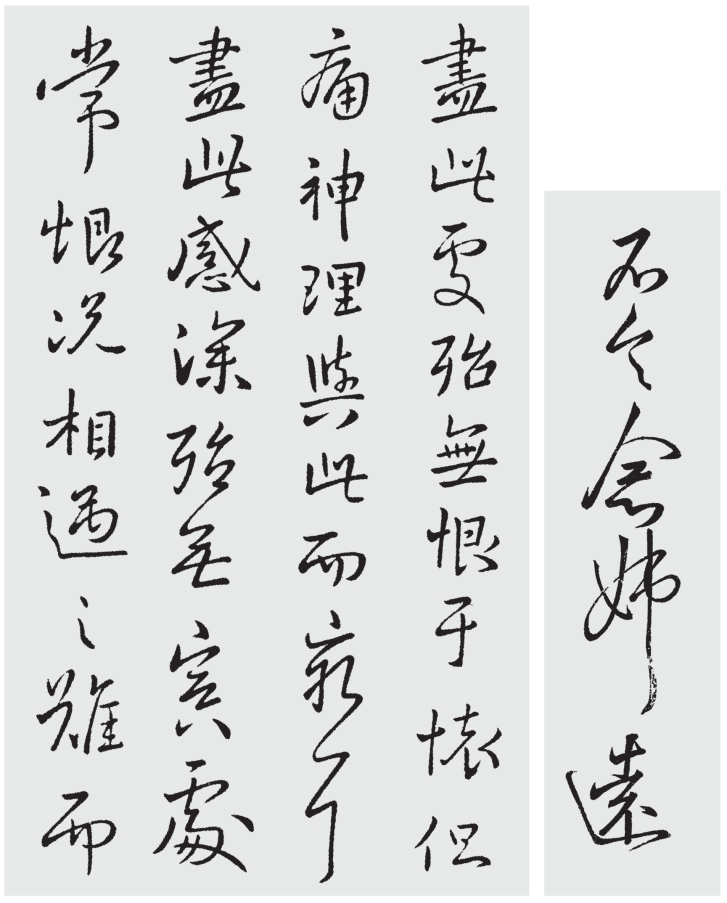 念姊遠
盡此處殆無恨于懷但
痛神理與此而窮耳
盡此感深殆無冥處
常恨況相遇之難而